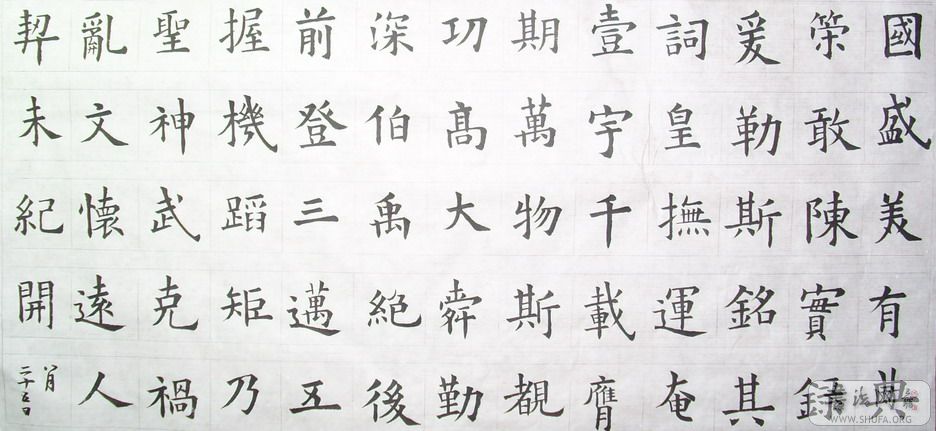 國盛美有典
策敢陳實錄
爰勒斯銘其
詞皇撫運奄
壹宇千載膺
期萬物斯覩
功髙大舜勤
深伯禹絕後
前登三邁五
握機蹈矩乃
聖神武克禍
亂文懷遠人
契未紀開
八月
二十五日
WWW.SHUFA.ORG